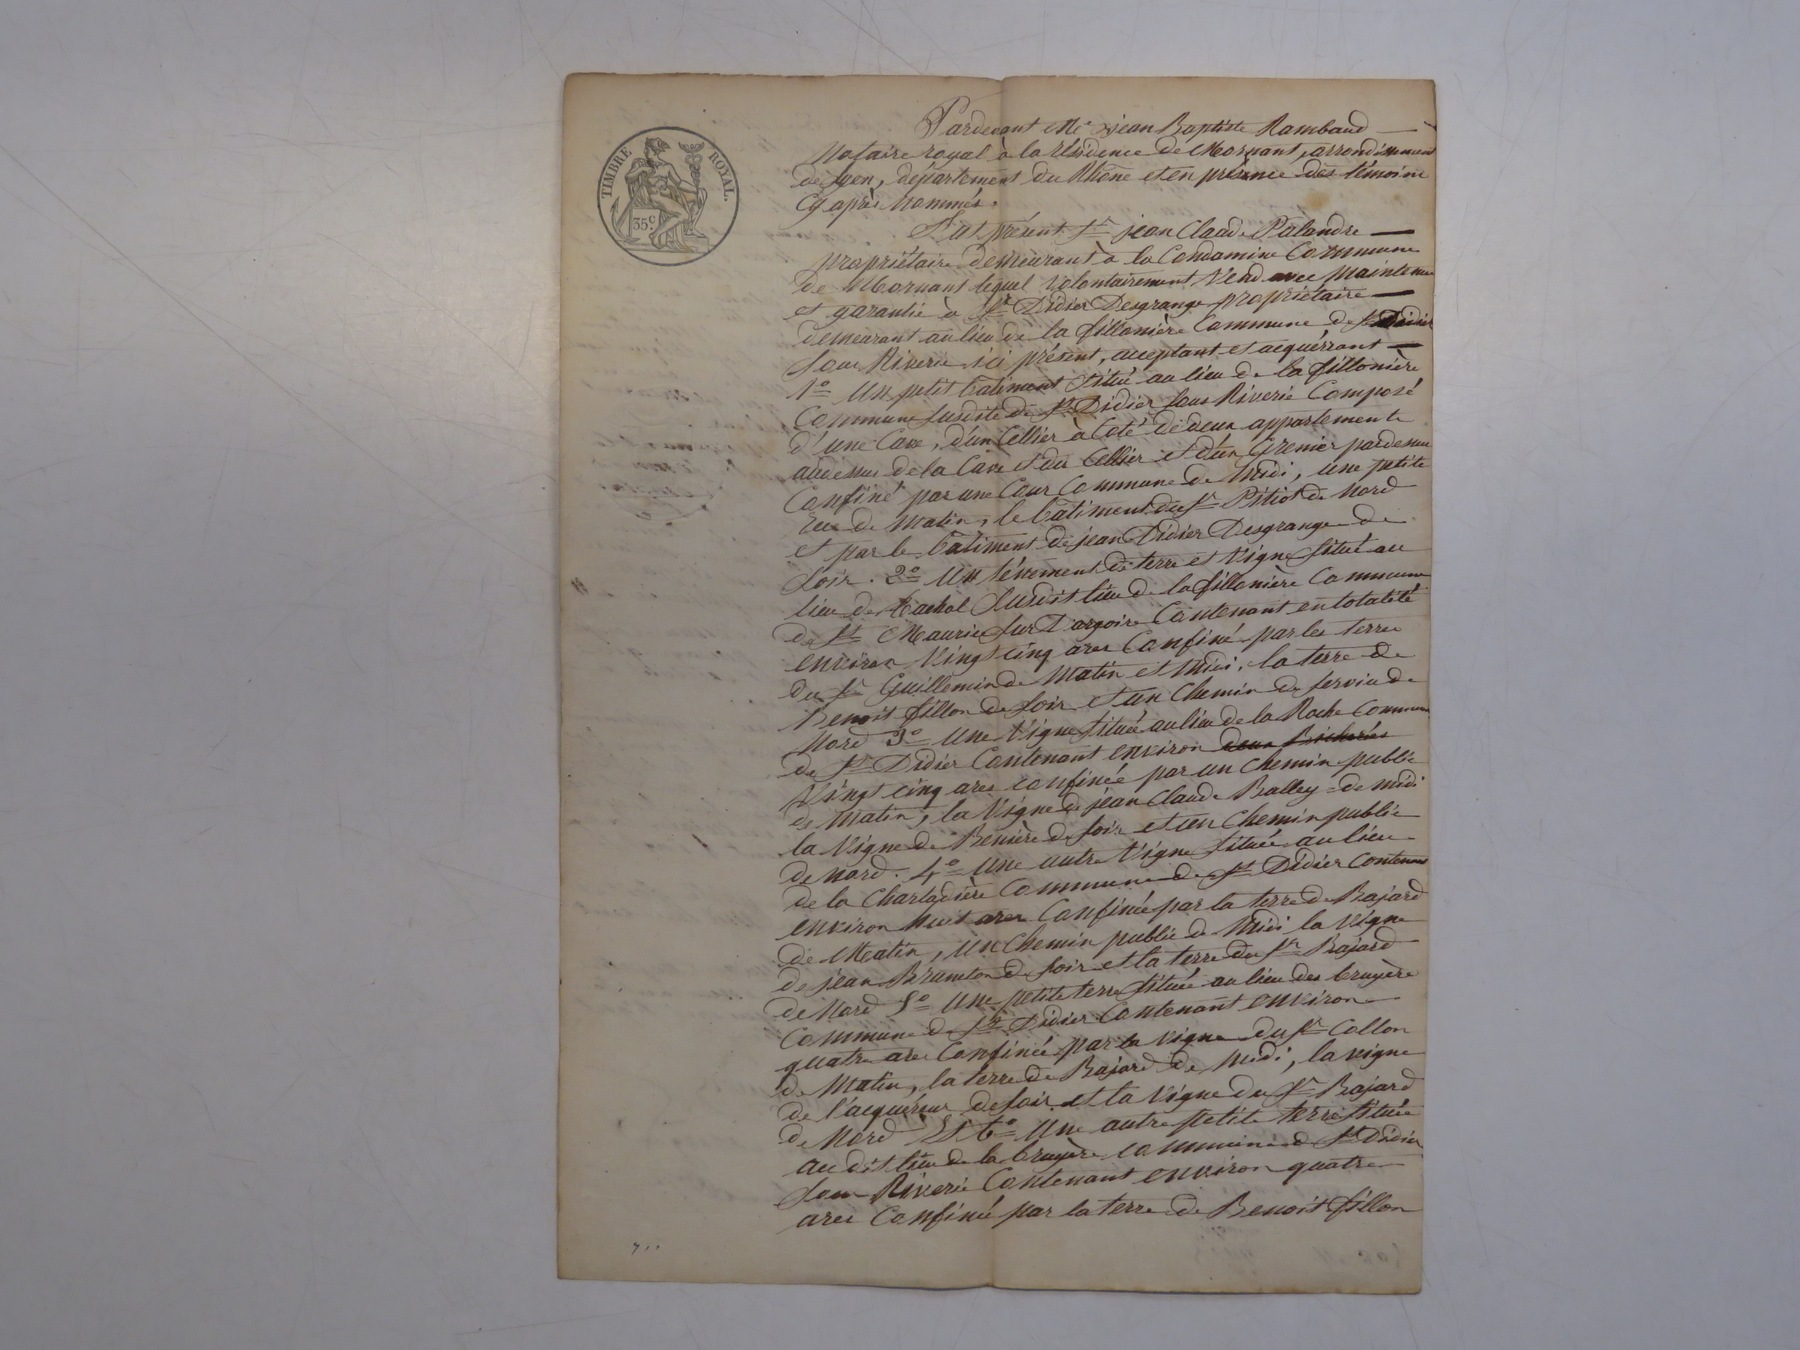 TIMBRE ROYAL.
35 c.
Pardevant Me jean Baptiste Rambaud
Notaire royal à la résidence de Mornant, arrondissement
de Lyon, département du Rhône et en présence des témoins
Cy après Nommés.
Fut présent Sr jean Claude Palandre
propriétaire demeurant à la Condamine Commune
de Mornant lequel volontairement Vend avec maintenue
et garantie à Sr Didier Desgrange propriétaire
demeurant au lieu de la fillonière Commune de St Didier
Sous Riverie ici présent, acceptant et acquérrant
1o Un petit batiment Situé au lieu de la fillonière
Commune susdite de St Didier Sous Riverie Composé
d'une Cave, d'un Cellier à Coté de deux appartements
audessus de la Cave et du Cellier et d'un Grenier pardessus
Confiné par une Cour Commune de Midi, une petite
rue de Matin, le batiment du Sr Pitiot de Nord
et par le batiment de jean Didier Desgrange de
Soir. 2o Un ténement de terre et Vigne Situé au
lieu de Susdit lieu de la fillonière Commune
de St Maurice Sur Dargoire Contenant en totalité
environ Vingt cinq ares Confiné par les terres
du Sr Guillemin de Matin et Midi, la terre de
Benoit fillon de Soir et un Chemin de Service de
Nord 3o Une Vigne Située au lieu de la Roche Commune
de St Didier Contenant environ deux Bicherées
Vingt cinq ares confinée par un Chemin public
de Matin, la Vigne de jean Claude Balley de midi
la Vigne de Benière de Soir et un Chemin public
de Nord. 4o Une autre Vigne Située au lieu
de la Commune de St Didier Contenant
environ huit ares Confinée par la terre de Bajard
de Matin, un Chemin public de Midi la Vigne
de jean de Soir et la terre du Sr Bajard
de Nord 5o Une petite terre Située au lieu des bruyère
Commune de St Didier Contenant environ
quatre ares Confinée par la vigne du Sr Collon
de Matin, la terre de Bajard de Midi, la vigne
de l'acquéreur de Soir et la Vigne du Sr Bajard
de Nord Et 6o Une autre petite terre Située
au dit lieu de la bruyère commune de St Didier
Sous Riverie Contenant environ quatre
ares Confiné par la terre de Benoit fillon